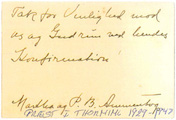 Tak for Venlighed mod
os og Gudrun ved hendes
Konfirmation
Martha og P. B. Ammentorp
PRÆST I THORNING 1929-1947